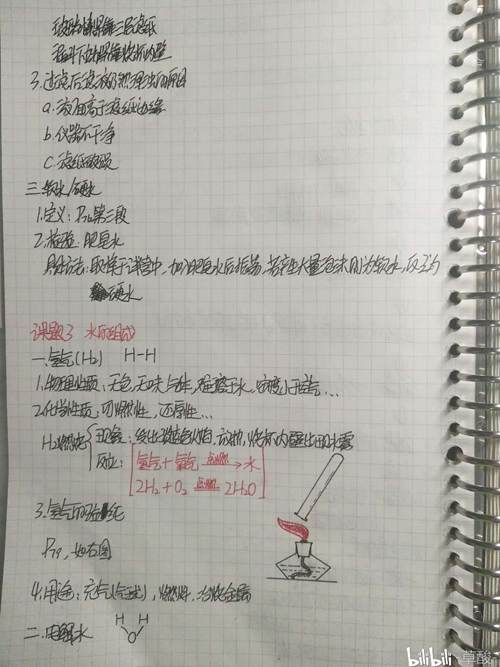 玻璃棒靠三层滤纸
漏斗下端靠烧杯内壁
3.过滤后滤液仍然浑浊的原因
a.液面高于滤纸边缘
b.仪器不干净
c.滤纸破损
三.软水/硬水
1.定义: 第三段
2.检验:肥皂水
具体方法:取样于试管中,加入肥皂水后振荡,若产生大量泡沫则为软水,反之为
硬水
课题3 水的组成
一.氢气(H₂) H-H
1.物理性质:无色,无味气体,难溶于水,密度小于空气...
2.化学性质:可燃性,还原性...
H₂燃烧
现象:发出淡蓝色火焰,放热,烧杯内壁出现水雾
反应: 氢气+氧气 点燃→ 水
2H₂+O₂ 点燃 2H₂O
3.氢气的验纯
P79,如右图
4.用途:充气(气球),燃料,冶炼金属
二.电解水 H H
O
bilibili 草酸